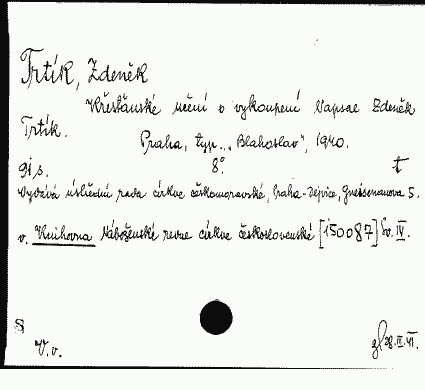 Trtík, Zdeněk
Křesťanské učení o vykoupení Napsal Zdeněk
Trtík. Praha, typ. „Blahoslav", 1940.
91 s. 8° t
Vydává ústřední rada církve českomoravské, Praha-Dejvice, Gneisenauova 5.
v. Knihovna Náboženské revue církve československé [150087] Sv. IV.
§
V. v. 28.III.41.